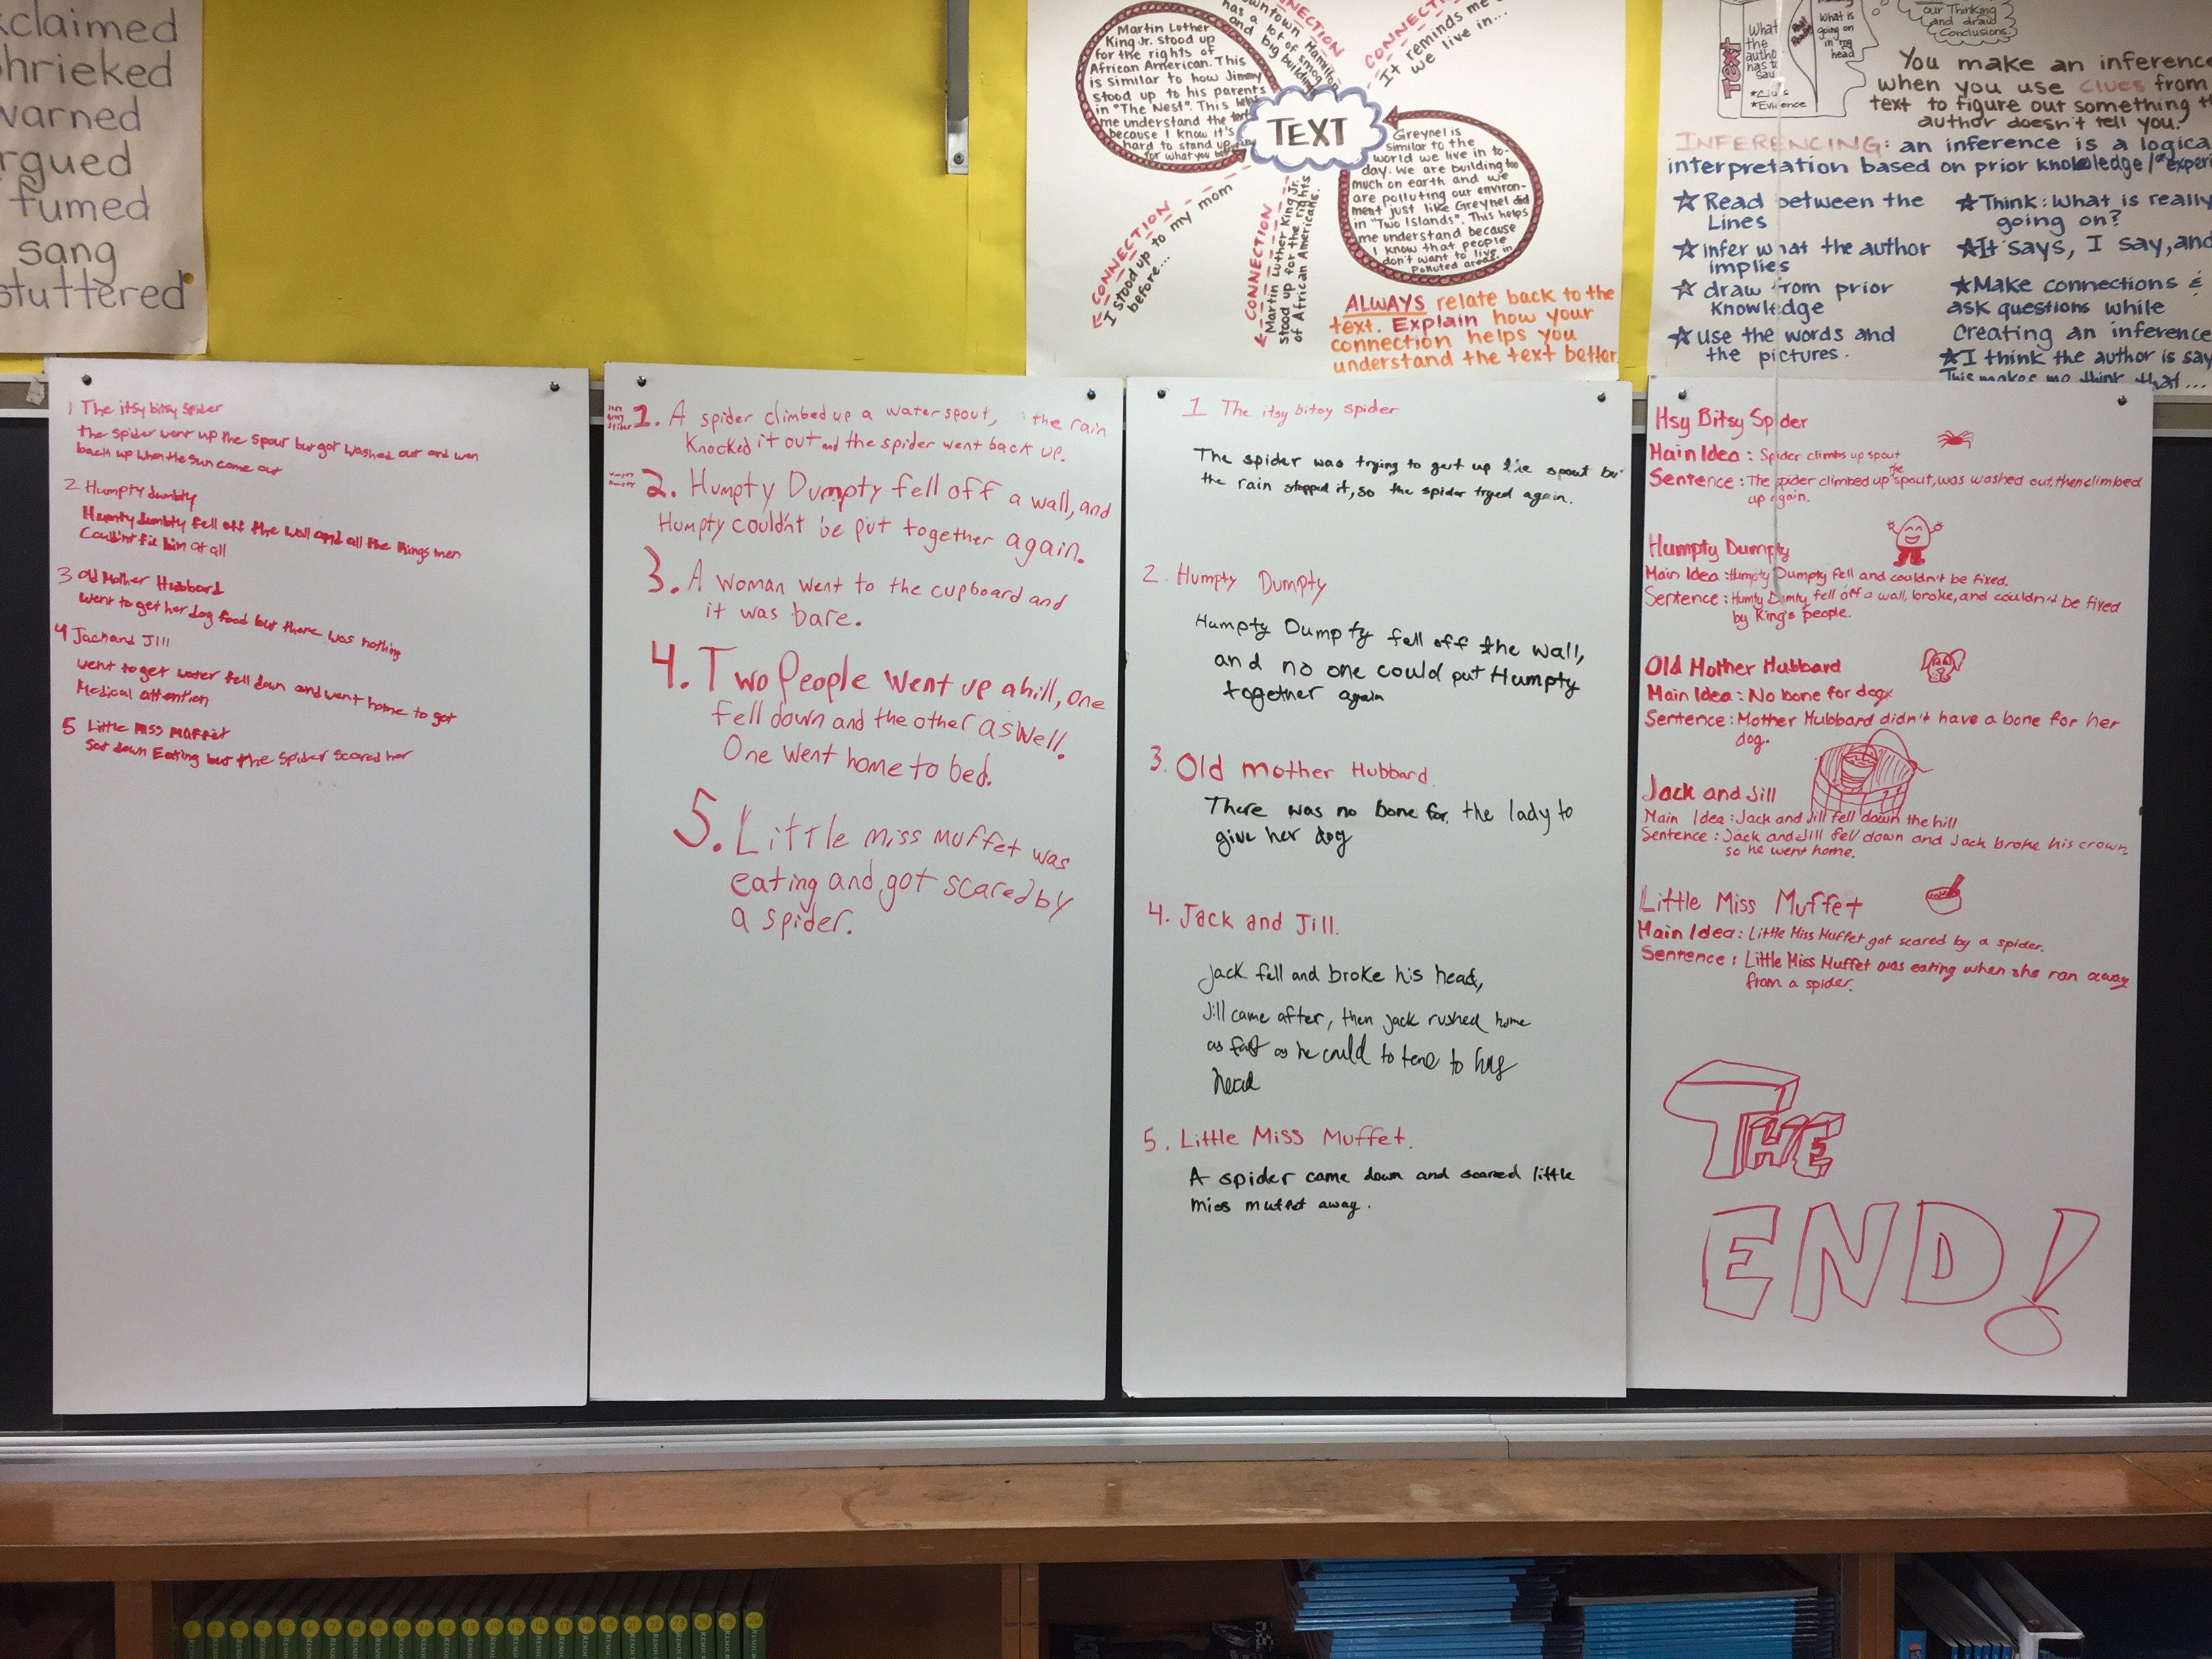 claimed
hrieked
warned
rgued
fumed
sang
stuttered
Martin Luther
King Jr. stood up
for the rights of
African American. This
is similar to how Jimmy
stood up to his parents
in "The Nest". This helps
me understand the text
because I know it's
hard to stand up
for what you believe in
downtown Hamilton
has a lot of smog
and big buildings
CONNECTION
It reminds me
we live in...
TEXT
Greynel is
similar to the
world we live in to-
day. We are building too
much on earth and we
are polluting our environ-
ment just like Greynel did
in "Two Islands". This helps
me understand because
I know that people
don't want to live in
polluted areas.
CONNECTION
I stood up to my mom
before...
CONNECTION
Martin Luther King Jr.
stood up for the rights
of African Americans.
ALWAYS relate back to the
text. Explain how your
connection helps you
understand the text better.
TEXT
What
the
autho
has t
say
*Clues
*Evidence
What is
going on
in my
head
our Thinking
and draw
Conclusions.
You make an inference
when you use clues from
text to figure out something th
author doesn't tell you.
INFERENCING: an inference is a logica
interpretation based on prior knowledge / experi
Read between the
Lines
infer what the author
implies
draw from prior
knowledge
use the words and
the pictures.
Think: What is really
going on?
It says, I say, and
Make connections &
ask questions while
Creating an inference
I think the author is say
This makes me think that...
1 The itsy bitsy spider
the spider went up the spout but got washed out and wen
back up when the sun come out
2 Humpty dumbty
Humty dumbty fell off the wall and all the kings men
Couldnt fix him at all
3 Old Mother Hubbard
went to get her dog food but there was nothing
4 Jack and Jill
went to get water fell down and went home to get
Medical attention
5 Little Miss Muffet
Sat down Eating but the Spider scared her
itsy
bitsy
spider
1. A spider climbed up a water spout, the rain
knocked it out and the spider went back up.
Humpty
Dumpty
2. Humpty Dumpty fell off a wall, and
Humpty couldn't be put together again.
3. A woman went to the cupboard and
it was bare.
4. Two People went up a hill, one
fell down and the other as well.
One went home to bed.
5. Little miss muffet was
eating and got scared by
a spider.
1 The itsy bitsy spider
The spider was trying to get up the spout bu
the rain stopped it, so the spider tryed again.
2. Humpty Dumpty
Humpty Dumpty fell off the wall,
and no one could put Humpty
together again
3. Old mother Hubbard.
There was no bone for the lady to
give her dog
4. Jack and Jill.
Jack fell and broke his head,
Jill came after, then jack rushed home
as fast as he could to tend to his
head
5. Little Miss Muffet.
A spider came down and scared little
miss muffet away.
Itsy Bitsy Spider
Main Idea: Spider climbs up spout
Sentence: The spider climbed up the spout, was washed out, then climbed
up again.
Humpty Dumpty
Main Idea: Humpty Dumpty fell and couldn't be fixed.
Sentence: Humty Dumty fell off a wall, broke, and couldn't be fixed
by King's people.
Old Mother Hubbard
Main Idea: No bone for dog
Sentence: Mother Hubbard didn't have a bone for her
dog.
Jack and Jill
Main Idea: Jack and Jill fell down the hill
Sentence: Jack and Jill fell down and Jack broke his crown
so he went home.
Little Miss Muffet
Main Idea: Little Miss Muffet got scared by a spider.
Sentence: Little Miss Muffet was eating when she ran away
from a spider.
THE
END!